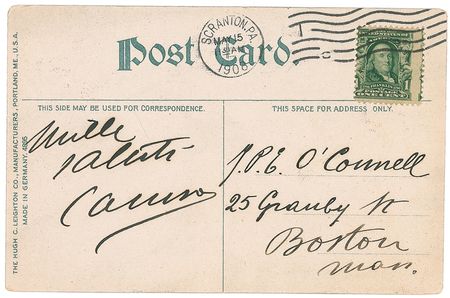 Post Card
SCRANTON, PA.
MAY 15
AM
1908
FRANKLIN
THIS SIDE MAY BE USED FOR CORRESPONDENCE.
THIS SPACE FOR ADDRESS ONLY.
THE HUGH C. LEIGHTON CO., MANUFACTURERS, PORTLAND, ME., U.S.A.
MADE IN GERMANY.
Mille
saluti
Caruso
J.P.E. O'Connell
25 Granby St
Boston
Mass.